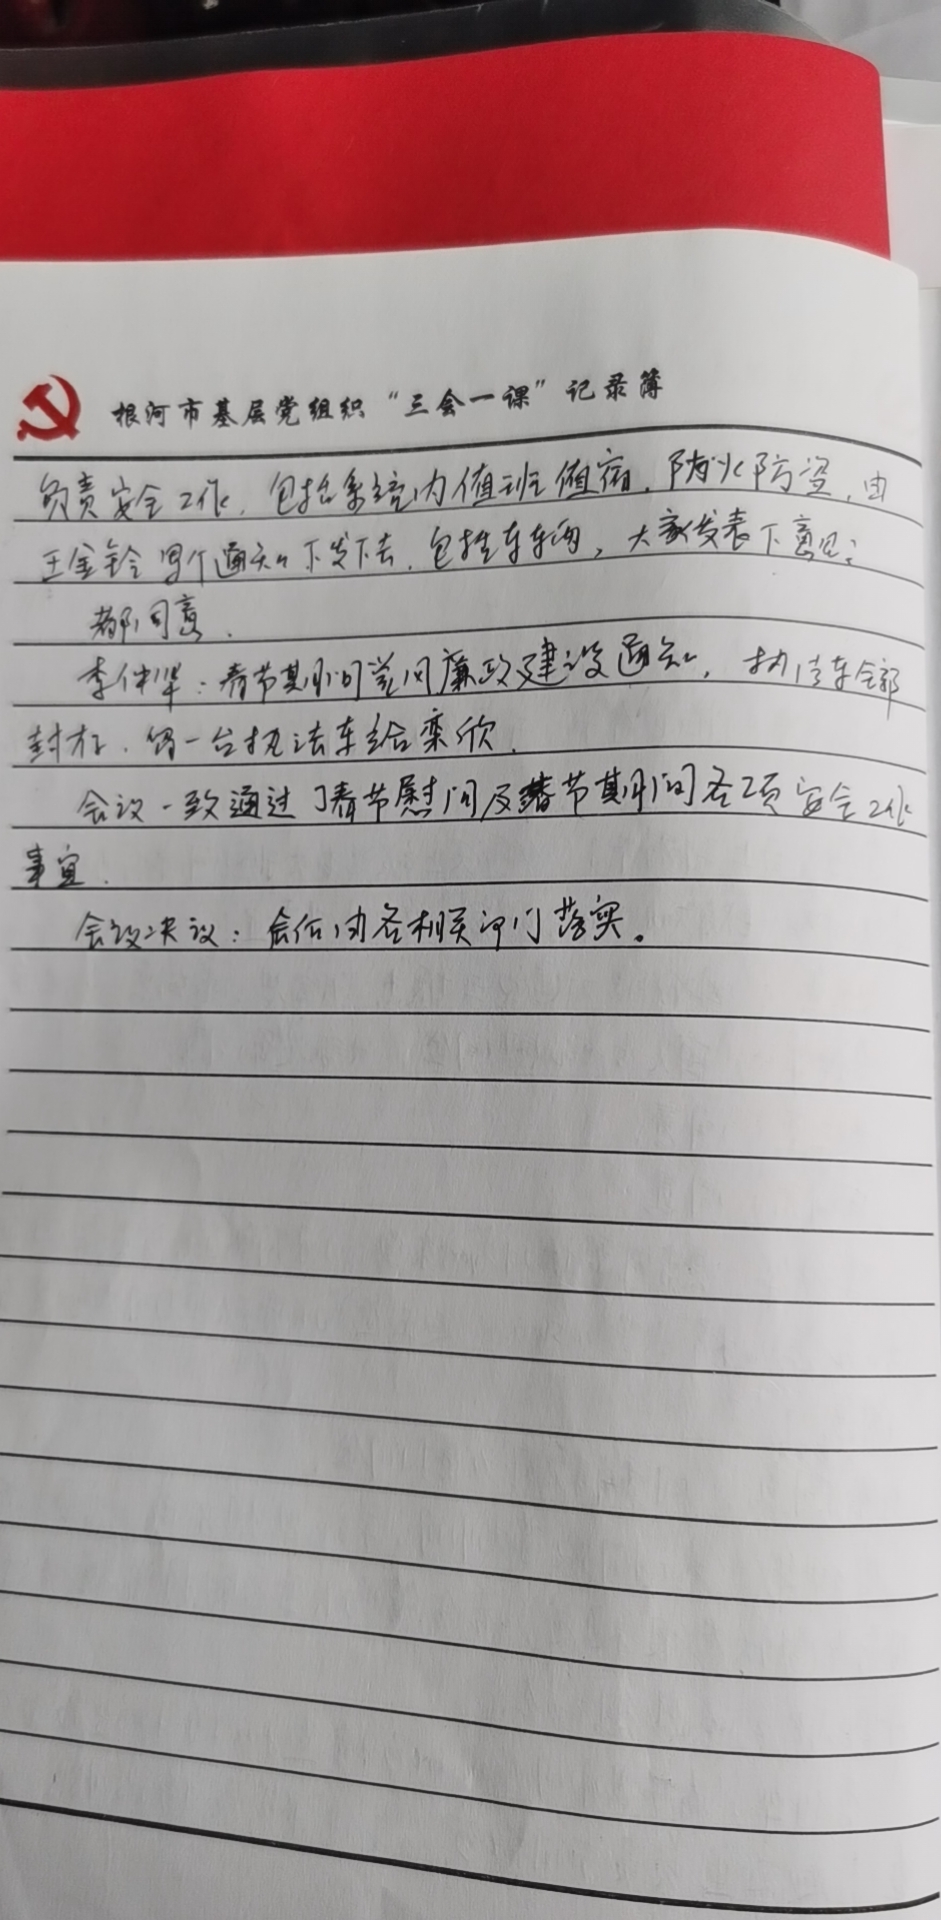 根河市基层党组织“三会一课”记录簿
负责安全工作,包括系统内值班值宿,防火防盗,由
王金铃写个通知下发下去,包括车辆,大家发表下意见:
都同意.
李仲华:春节期间党风廉政建设通知,执法车全部
封存.留一台执法车给栾欣.
会议一致通过了春节慰问及春节期间各项安全工作
事宜.
会议决议:会后由各相关部门落实。